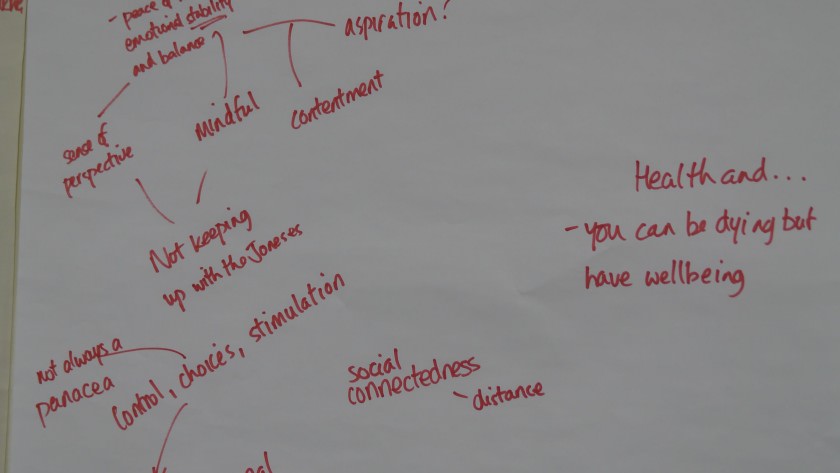 - peace of
emotional stability
and balance
aspiration?
Mindful
contentment
sense of
perspective
Not keeping
up with the Joneses
Health and...
- you can be dying but
have wellbeing
not always a
panacea
Control, choices, stimulation
social
connectedness
- distance